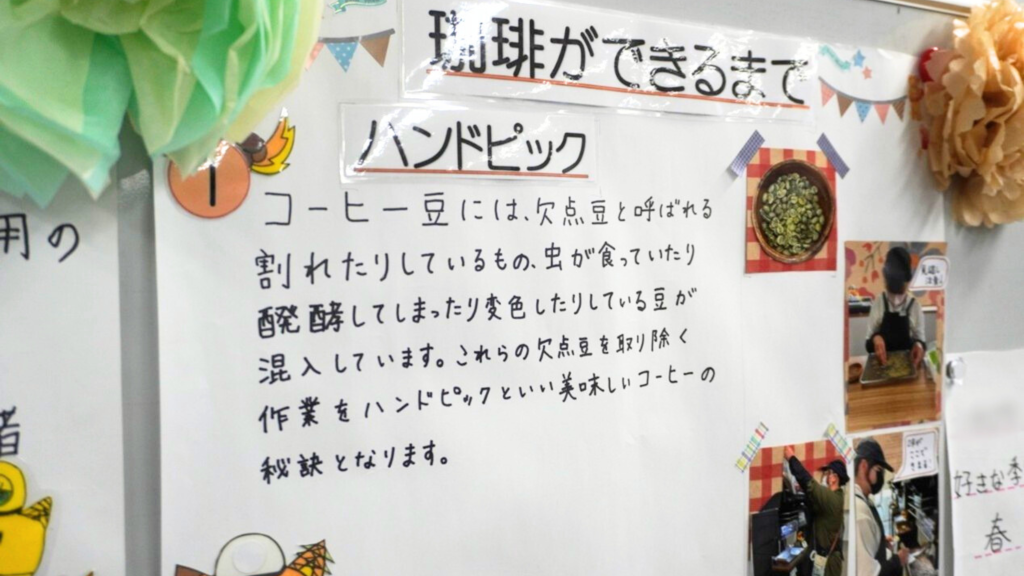 珈琲ができるまで
ハンドピック
1
コーヒー豆には、欠点豆と呼ばれる
割れたりしているもの、虫が食っていたり
醗酵してしまったり変色したりしている豆が
混入しています。これらの欠点豆を取り除く
作業をハンドピックといい美味しいコーヒーの
秘訣となります。
用の
者
好きな季
春